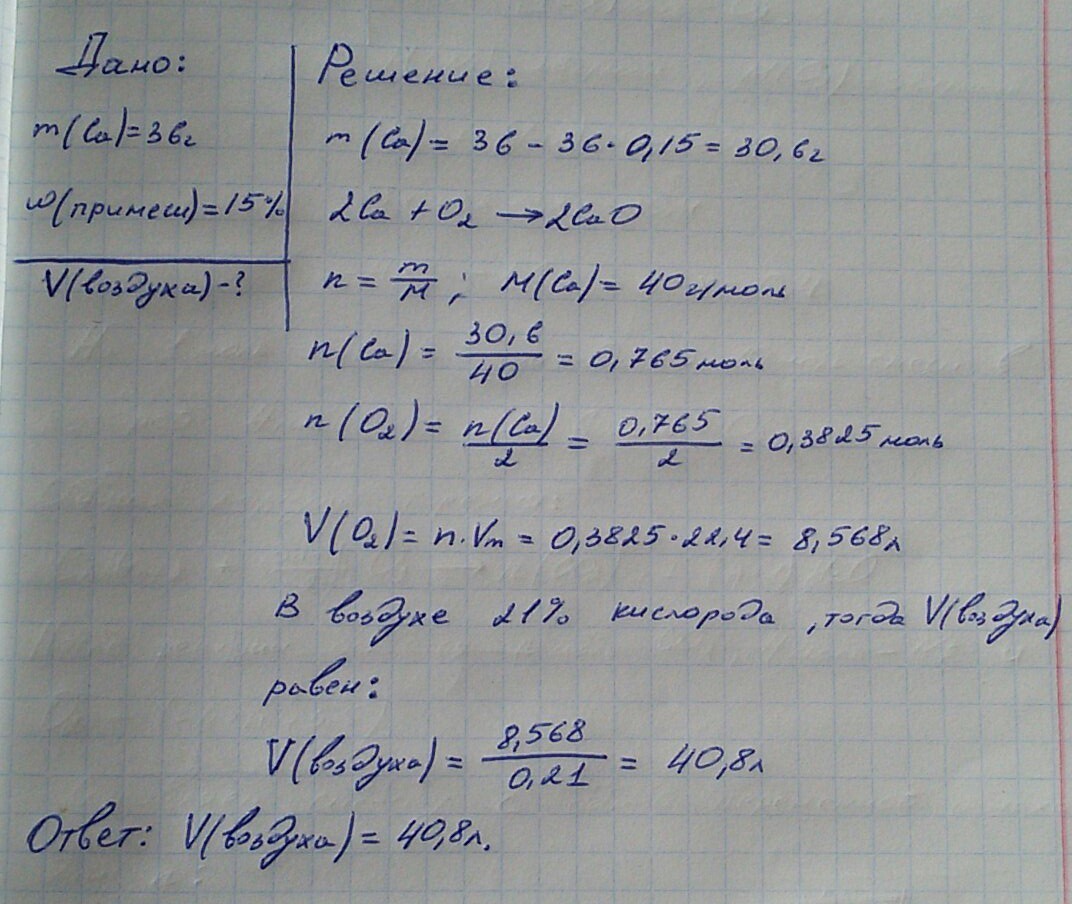 Дано:
m(Ca)=36г
w(примеш)=15%
V(воздуха)-?
Решение:
m(Ca)= 36 - 36·0,15 = 30,6г
2Ca + O₂ → 2CaO
n = m/M ; M(Ca)= 40г/моль
n(Ca) = 30,6/40 = 0,765 моль
n(O₂) = n(Ca)/2 = 0,765/2 = 0,3825 моль
V(O₂)= n·Vm = 0,3825·22,4 = 8,568л
В воздухе 21% кислорода, тогда V(воздуха)
равен:
V(воздуха) = 8,568/0,21 = 40,8л
Ответ: V(воздуха) = 40,8л.